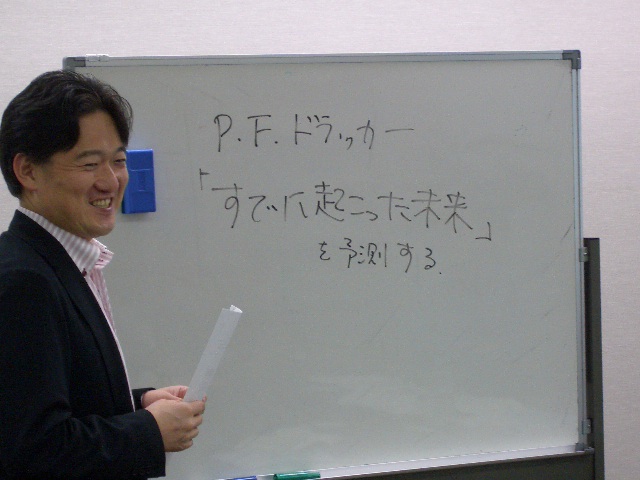 P.F.ドラッカー
「すでに起こった未来」
を予測する.